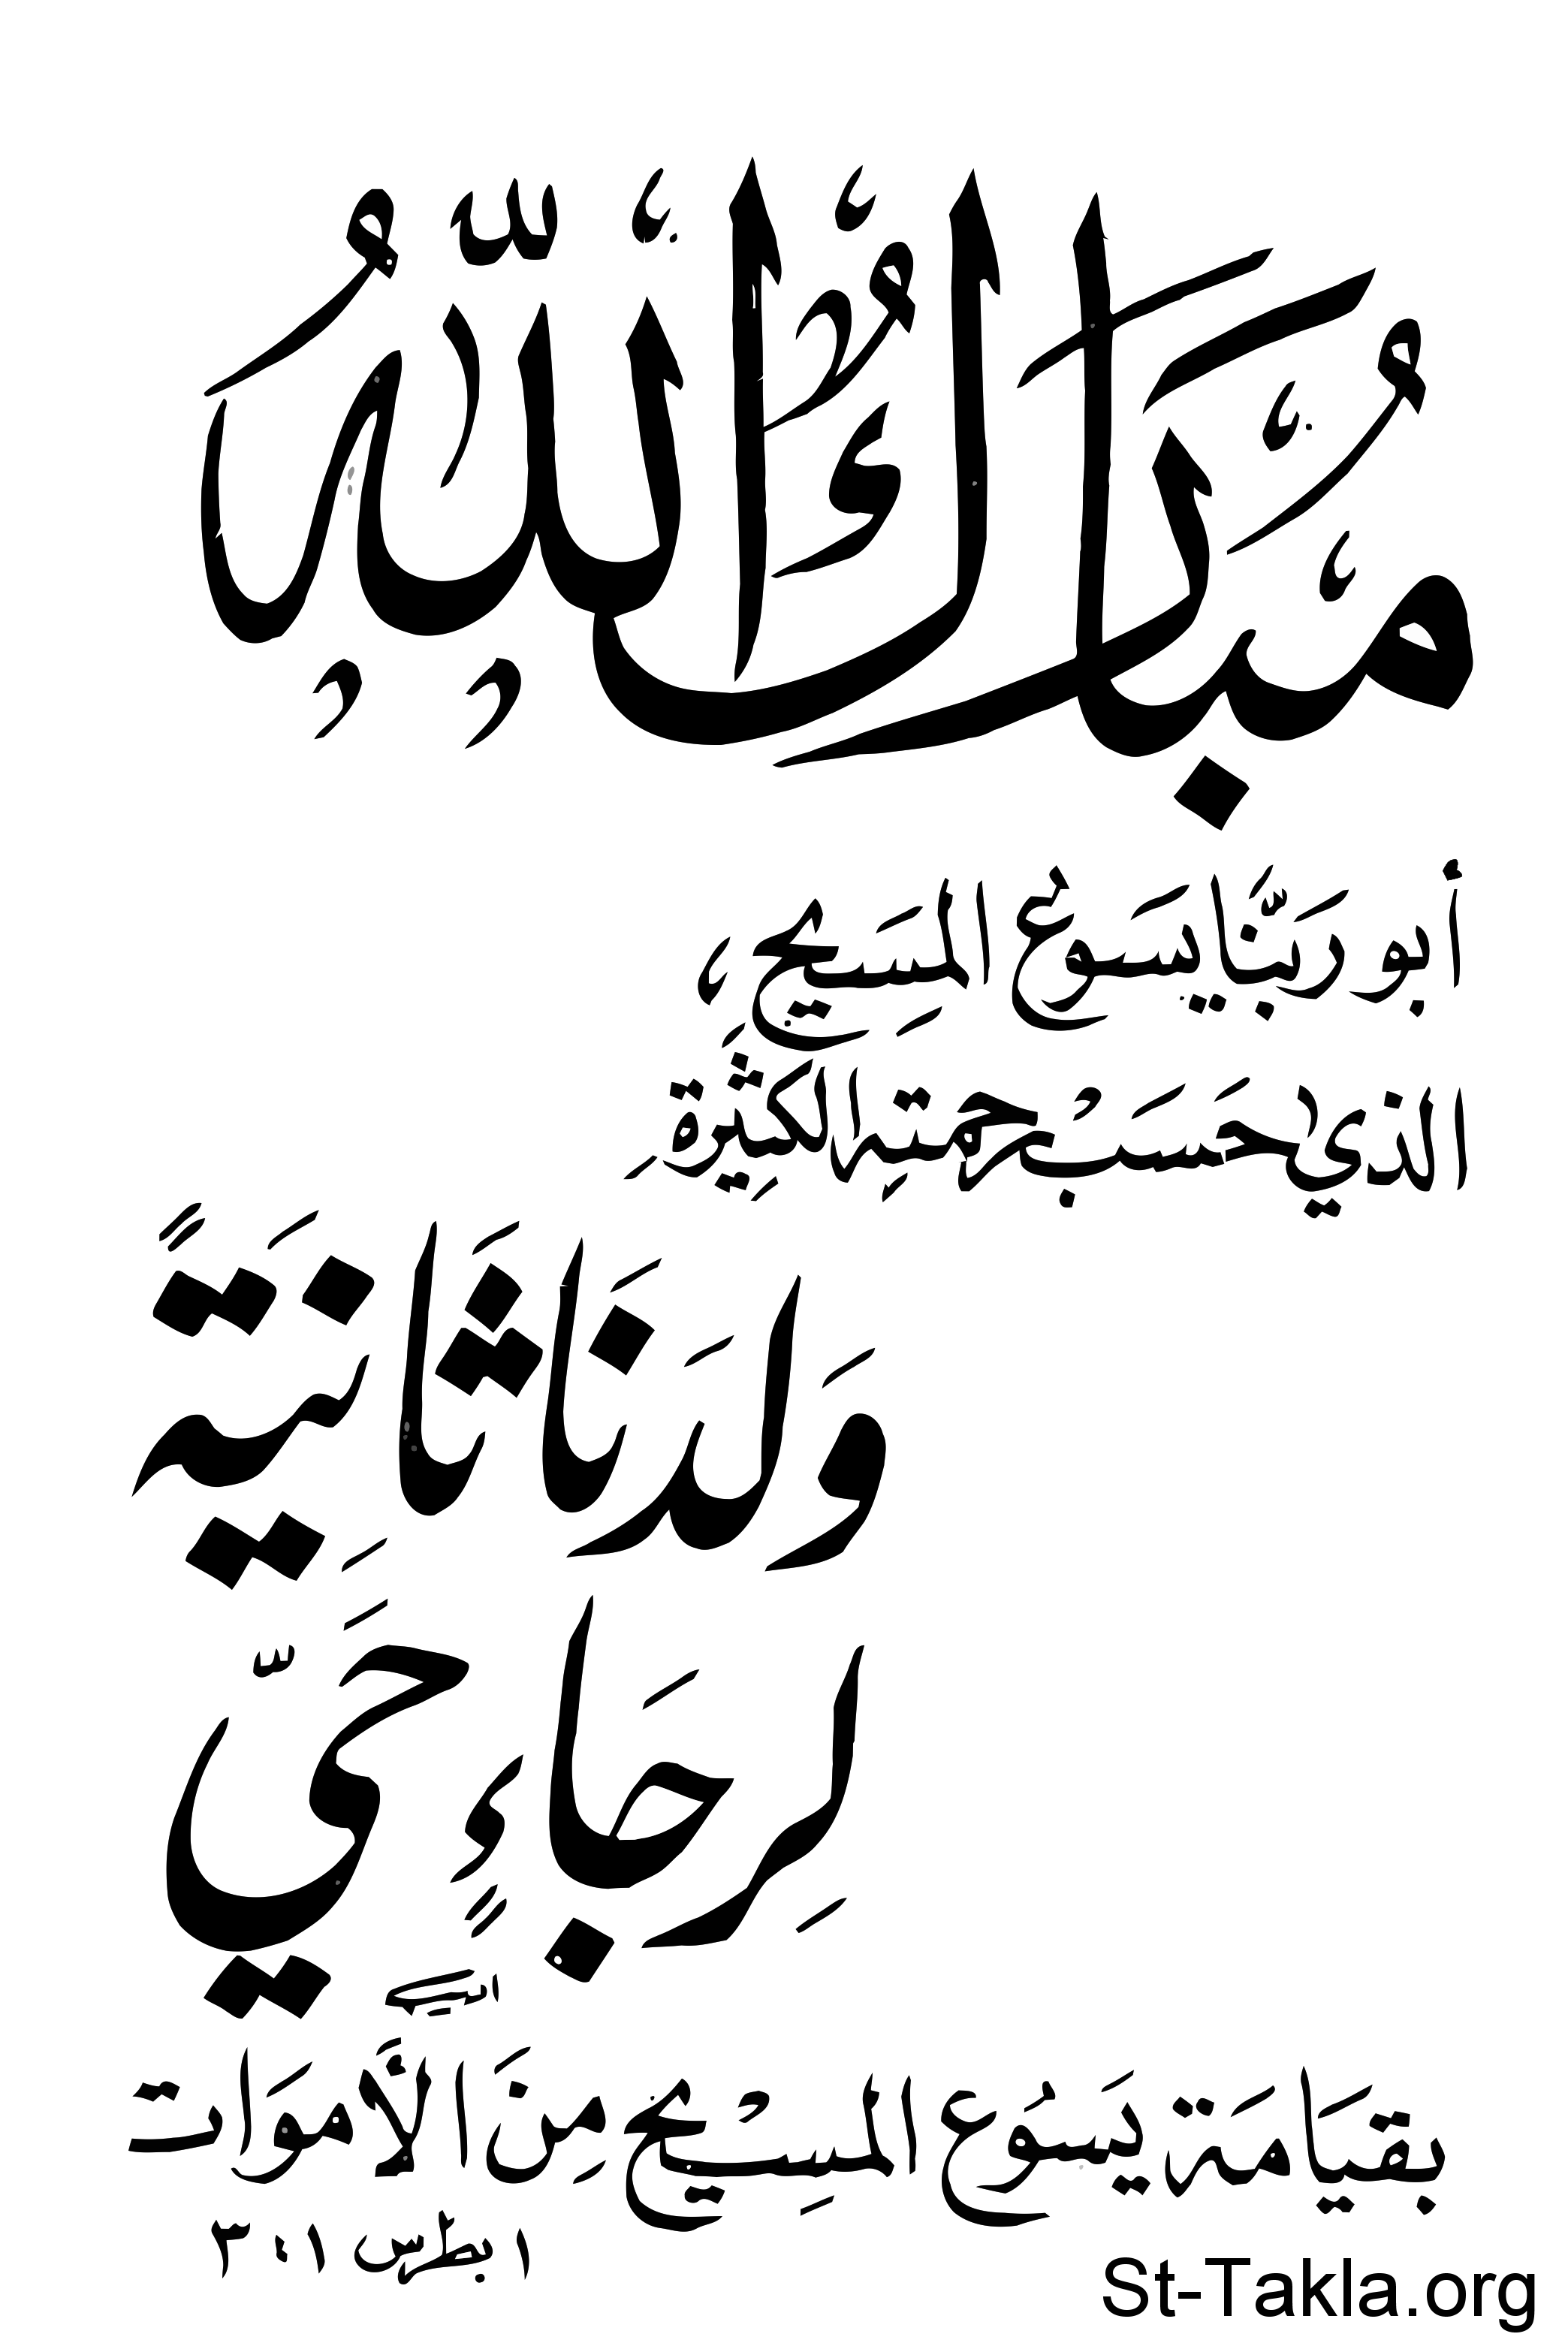 مُبَارَكٌ اللهُ
أبو رَبِّنَا يَسوعَ المَسِيحِ،
الذي حَسَبَ رَحمَتِهِ الكَثِيرَةِ
وَلَدَنَا ثَانِيَةً
لِرَجَاءٍ حَيّ
بِقِيَامَةِ يَسُوعَ المَسِيحِ مِنَ الأَموَات
١ بطرس ١ : ٣
St-Takla.org